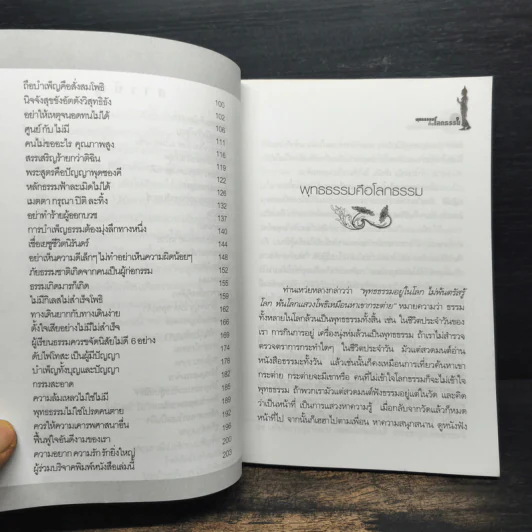 ถือบำเพ็ญคือสั่งสมโพธิ
นิจจังสุขังอัตตังวิสุทธิธัง 100
อย่าให้เหตุจนอดทนไม่ได้ 102
ศูนย์ กับ ไม่มี 106
คนไม่ขออะไร คุณภาพสูง 111
สรรเสริญร้ายกว่าติฉิน 116
พระสูตรคือปัญญาพุดของคี 119
หลักธรรมฟ้าละเมิดไม่ได้ 122
เมตตา กรุณา ปิติ ละทิ้ง 126
อย่าทำร้ายผู้ออกบวช 132
การบำเพ็ญธรรมต้องมุ่งลึกทางหนึ่ง 137
เชื่อเยซูชีวิตนิรันดร์ 140
อย่าเห็นความดีเล็กๆ ไม่ทำอย่าเห็นความผิดน้อยๆ 144
ภัยธรรมชาติเกิดจากคนเป็นผู้ก่อกรรม 148
ธรรมเกิดมารก็เกิด 152
ไม่มีกิเลสไม่สำเร็จโพธิ 155
ทางเดินยากกับทางเดินง่าย 159
ตั้งใจเสียอย่างไม่มีไม่สำเร็จ 162
ผู้เรียนธรรมควรขจัดนิสัยไม่ดี 6 อย่าง 167
ดับไฟโทสะ เป็นผู้มีปัญญา 174
บำเพ็ญทั้งบุญและปัญญา 178
กรรมสะอาด 182
ความล้มเหลวไม่ใช่ไม่มี 185
พุทธธรรมไม่ใช่โปรดคนตาย 189
ควรให้ความเคารพศาสนาอื่น 192
ฟื้นฟูใจอันดีงามของเรา 196
ความอยาก ความรัก รักยิ่งใหญ่ 200
ผู้ร่วมบริจาคพิมพ์หนังสือเล่มนี้ 203
พุทธธรรมคือโลกธรรม
ท่านเหว่ยหลางกล่าวว่า “พุทธธรรมอยู่ในโลก ไม่พ้นตรัสรู้
โลก พ้นโลกแสวงโพธิเหมือนหาเขากระต่าย” หมายความว่า ธรรม
ทั้งหลายในโลกล้วนเป็นพุทธธรรมทั้งสิ้น เช่น ในชีวิตประจำวันของ
เรา การกินการอยู่ เครื่องนุ่งห่มล้วนเป็นพุทธธรรม ถ้าเราไม่สำรวจ
ตรวจตราการกระทำใดๆ ในชีวิตประจำวัน มัวแต่สวดมนต์อ่าน
หนังสือธรรมะทั้งวัน แล้วเช่นนั้นก็คงเหมือนการเที่ยวค้นหาเขา
กระต่าย กระต่ายจะมีเขาหรือ คนที่ไม่เข้าใจโลกธรรมก็จะไม่เข้าใจ
พุทธธรรม ถ้าพวกเรามัวแต่สวดมนต์ฟังธรรมอยู่แต่ในวัด และคิด
ว่าเป็นหน้าที่ เป็นการแสวงหาความรู้ เมื่อกลับจากวัดแล้วก็หมด
หน้าที่ไป จากนั้นก็เฮฮาไปตามเพื่อน หาความสนุกสนาน ดูหนังฟัง